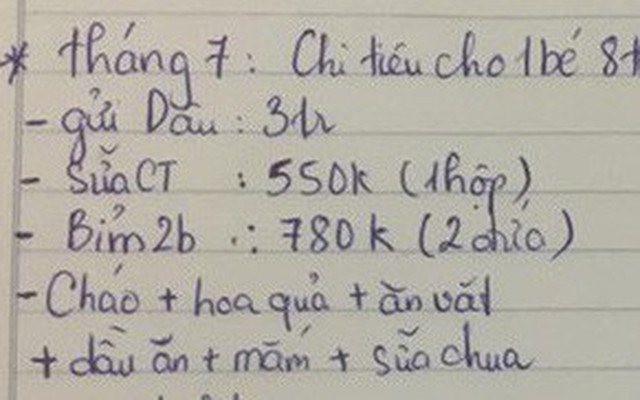 * tháng 7: Chi tiêu cho 1 bé 8t
- gửi Dâu : 3tr
- Sữa CT : 550k (1 hộp)
- Bỉm 2b : 780k (2
- Cháo + hoa quả + ăn vặt
+ dầu ăn + mắm + sữa chua